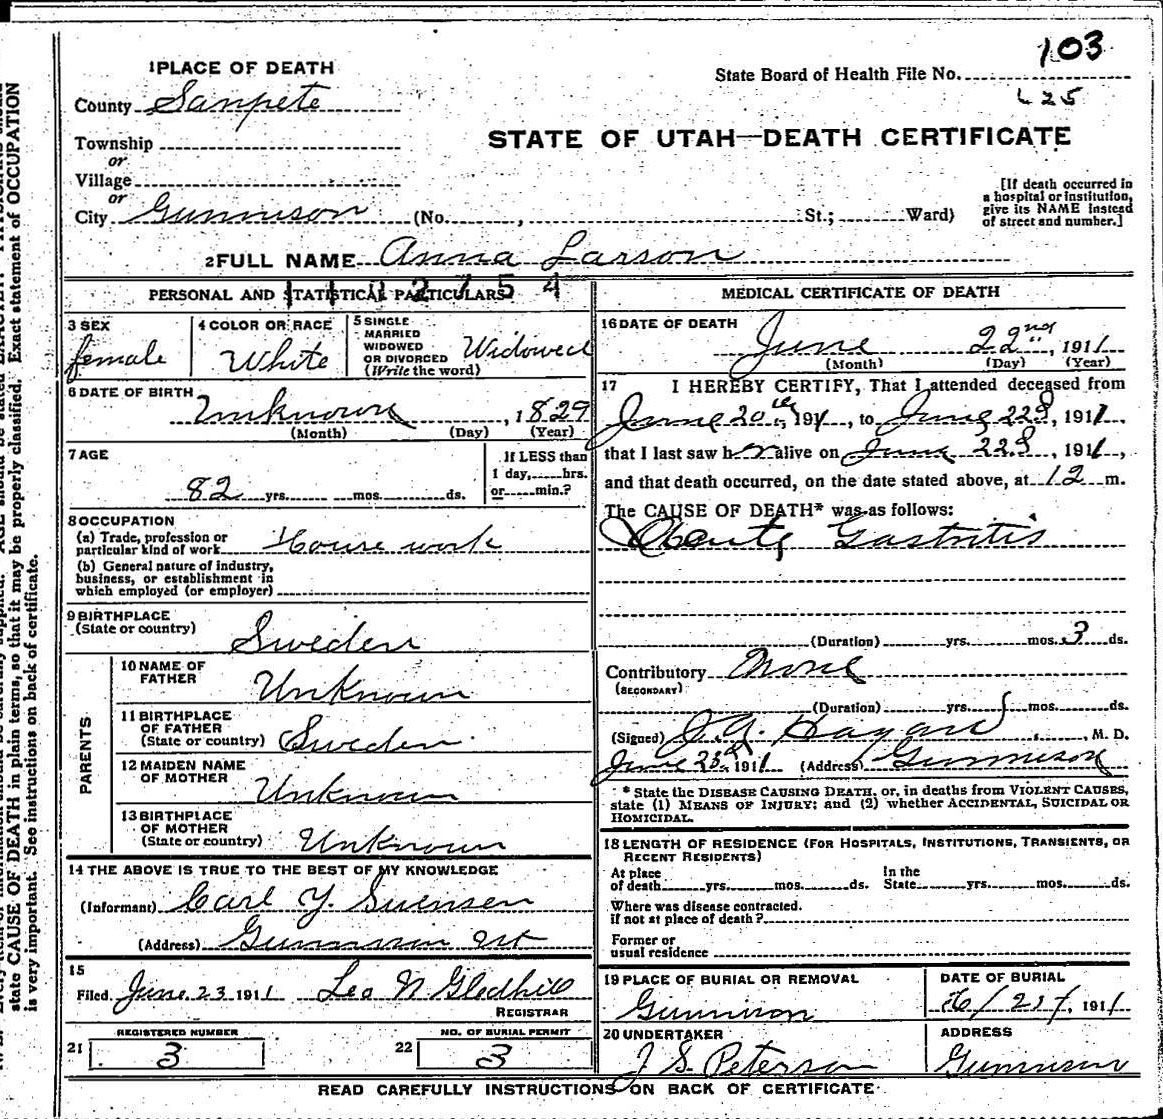 103
State Board of Health File No.
625
1 PLACE OF DEATH
County Sanpete
STATE OF UTAH—DEATH CERTIFICATE
Township
or
Village
or
City Gunnison (No. , St.; Ward)
[If death occurred in a hospital or institution, give its NAME instead of street and number.]
2 FULL NAME Anna Larson
PERSONAL AND STATISTICAL PARTICULARS
3 SEX
female
4 COLOR OR RACE
White
5 SINGLE
MARRIED
WIDOWED
OR DIVORCED
(Write the word)
Widowed
6 DATE OF BIRTH
Unknown , 1829
(Month) (Day) (Year)
7 AGE
82 yrs. mos. ds.
If LESS than
1 day, hrs.
or min.?
8 OCCUPATION
(a) Trade, profession or
particular kind of work House work
(b) General nature of industry,
business, or establishment in
which employed (or employer)
9 BIRTHPLACE
(State or country)
Sweden
PARENTS
10 NAME OF
FATHER
Unknown
11 BIRTHPLACE
OF FATHER
(State or country) Sweden
12 MAIDEN NAME
OF MOTHER
Unknown
13 BIRTHPLACE
OF MOTHER
(State or country) Unknown
14 THE ABOVE IS TRUE TO THE BEST OF MY KNOWLEDGE
(Informant) Carl Y. Swensen
(Address) Gunnison Ut
15
Filed June 23 1911 Leo N Gledhill
REGISTRAR
REGISTERED NUMBER
21 3
NO. OF BURIAL PERMIT
22 3
MEDICAL CERTIFICATE OF DEATH
16 DATE OF DEATH
June 22nd, 1911
(Month) (Day) (Year)
17 I HEREBY CERTIFY, That I attended deceased from
June 20th, 1911, to June 22d, 1911,
that I last saw her alive on June 22d, 1911,
and that death occurred, on the date stated above, at 12 m.
The CAUSE OF DEATH* was as follows:
Acute Gastritis
(Duration) yrs. mos. 3 ds.
Contributory None
(SECONDARY)
(Duration) yrs. mos. ds.
(Signed) J. A. Hagan, M. D.
June 23d 1911 (Address) Gunnison
* State the DISEASE CAUSING DEATH, or, in deaths from VIOLENT CAUSES,
state (1) MEANS OF INJURY; and (2) whether ACCIDENTAL, SUICIDAL OR
HOMICIDAL.
18 LENGTH OF RESIDENCE (FOR HOSPITALS, INSTITUTIONS, TRANSIENTS, OR
RECENT RESIDENTS)
At place
of death yrs. mos. ds.
In the
State yrs. mos. ds.
Where was disease contracted.
if not at place of death?
Former or
usual residence
19 PLACE OF BURIAL OR REMOVAL
Gunnison
DATE OF BURIAL
, 1911
20 UNDERTAKER
J S. Peterson
ADDRESS
Gunnison
READ CAREFULLY INSTRUCTIONS ON BACK OF CERTIFICATE
state CAUSE OF DEATH in plain terms, so that it may be properly classified. Exact statement of OCCUPATION
is very important. See instructions on back of certificate.